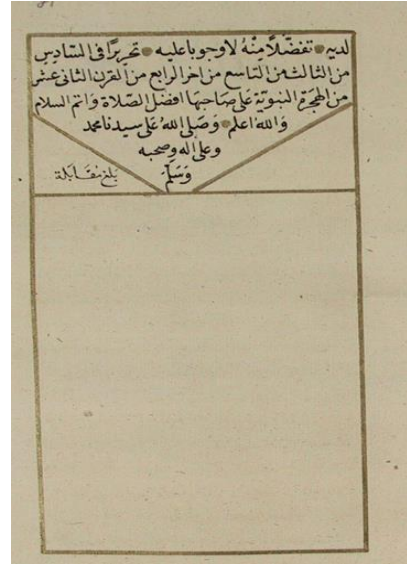 لديه تفضّلًا مِنْهُ لا وجوبا عليه تحريرًا فى السّادِسِ
من الثالث من التاسع من اخر الرابع من القرن الثانى عشر
من الهجرة النبويّة عَلى صَاحِبهَا افضل الصّلاة وَاتم السلام
وَاللهُ اعلم وَصَلى اللهُ عَلى سيدنا محمد
وعلى اله وصحبه
وَسَلَّم
بَلغ مقَابَلة